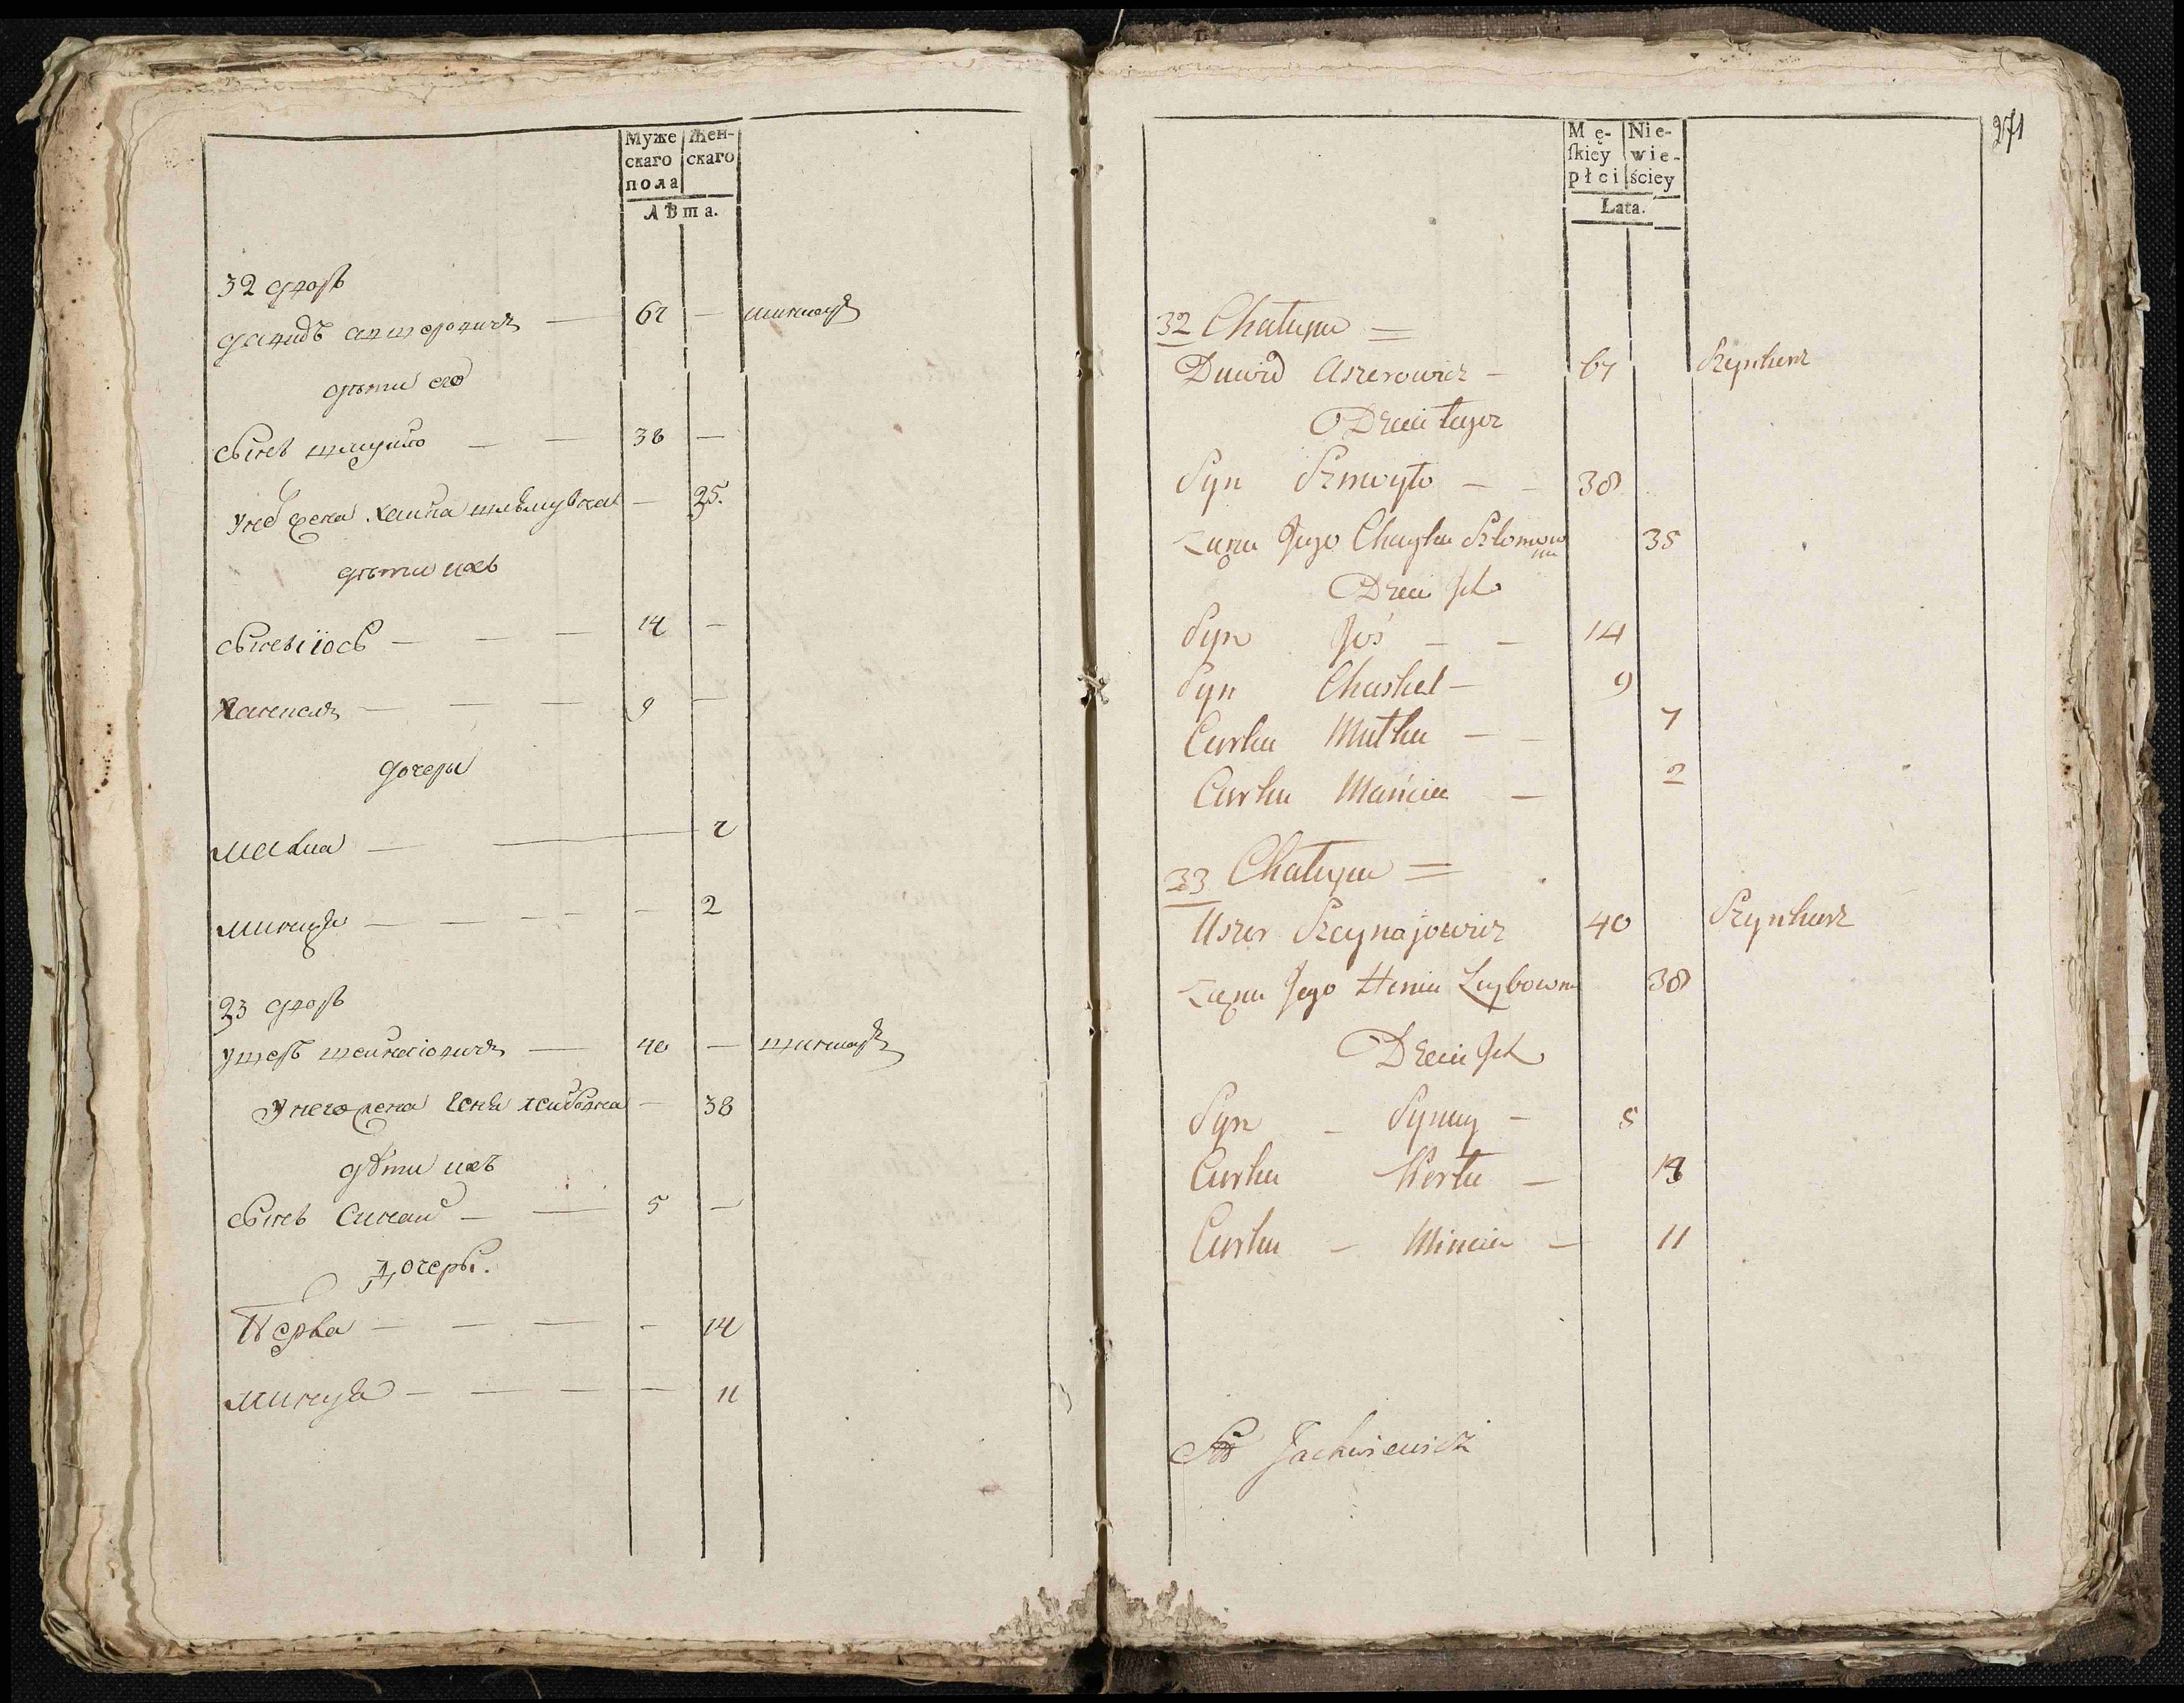 Муже Жен-
скаго скаго
пола
Лѣта.
32 дворъ
Давидъ Ашеровичъ — 67 — шинкарь
дѣти его
Сынъ Шмуйло — — 38 —
У него жена Хайка Шлёмувна — 25.
дѣти ихъ
Сынъ Іось — — — 14 —
Хаскель — — — 9 —
дочери
Малка — — 7
— — — — — 2
23 дворъ
Ушеръ Шейнаіовичъ — 40 — шинкарь
У него жена Геня Лейбовна — 38
дѣти ихъ
Сынъ Синай — — 5 —
Дочеры.
Перла — — — — 14
Минця — — — — 11
271
Mę- Nie-
ſkiey wie-
płci ściey
Łata.
32 Chałupa =
Dawid Aszerowicz — 67 Szynkarz
Dzieci tegoż
Syn Szmuyło — — 38
Żona Jego Chayka Szlomow
na 35
Dzieci Ich
Syn Joś — — 14
Syn Chaskel — 9
Curka Matka — — 7
Curka Mańcia — 2
33 Chałupa =
Uszer Szeynajowicz 40 Szynkarz
Żona Jego Henia Leybowna 38
Dzieci Ich
Syn — Synay — 5
Curka Perła — 14
Curka — Mincia — 11
Jackiewicz